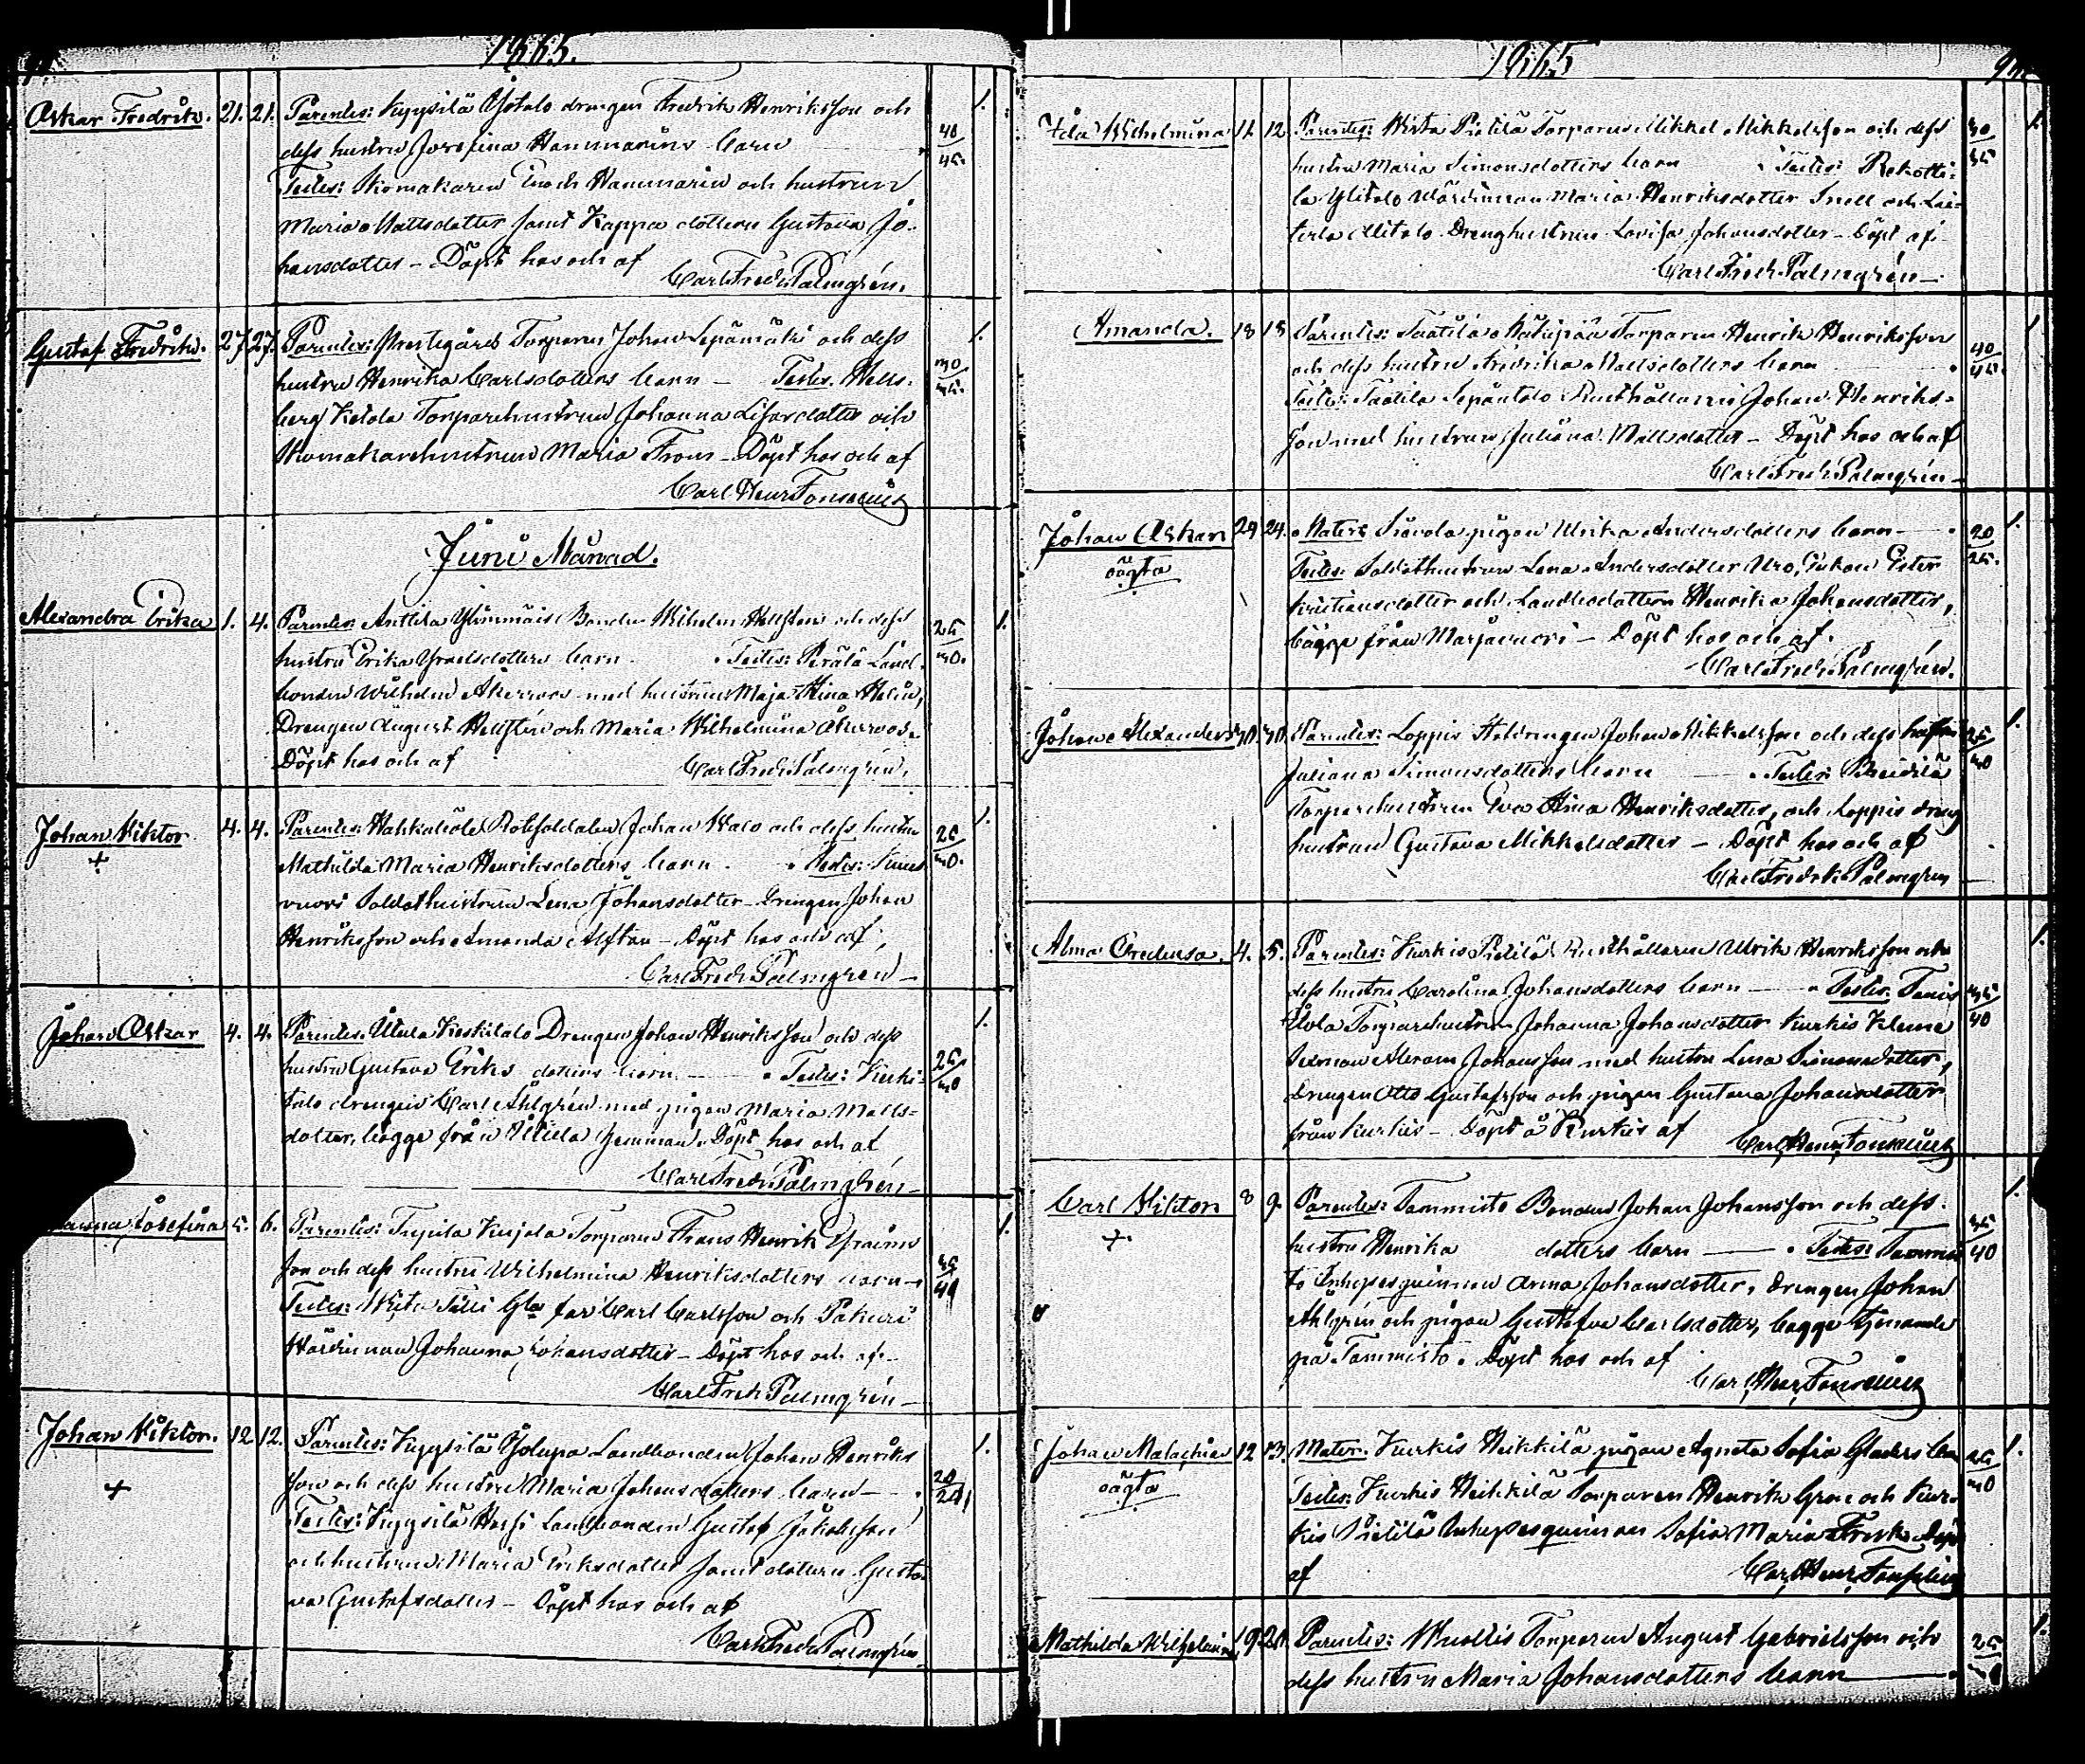 1865.
Oskar Fredrik. 21. 21. Parentes: Kyysilä Yötalo drengen Fredrik Henriksson och 1.
dess hustru Josefina Hammarins barn 40/45.
Testes: Skomakaren Enoch Hammarin och hustrun
Maria Mattsdotter samt Kappa dottern Gustava Jo-
hansdotter – Döpt hos och af
Carl Fredr. Palmgrén.
Gustaf Fredrik. 27. 27. Parentes: Prestegårds Torparen Johan Lepämäki och dess 1.
hustru Henrika Carlsdotters barn – Testes: Hells-
berg Ketola Torparehustrun Johanna Lisasdotter och
Skomakarehustrun Maria From – Döpt hos och af
Carl Henr Fonselius
Juni Månad.
Alexandra Erika 1. 4. Parentes: Anttila Ylimmäis Bonden Wilhelm Hellsten och dess 1.
hustru Erika Ysraelsdotters barn. Testes: Perälä Land- 25/30.
bonden Wilhelm Åkerroos med hustrun Maja Stina Helin,
Drengen August Hellstén och Maria Wilhelmina Åkerroos.
Döpt hos och af Carl Fredr. Palmgrén.
Johan Viktor 4. 4. Parentes: Hakkaliola Rotesoldaten Johan Walo och dess hustru 1.
+ Mathilda Maria Henriksdotters barn. Testes: 25/30.
vuori Soldathustrun Lena Johansdotter – Drengen Johan
Henriksson och Amanda Alftan – Döpt hos och af,
Carl Fredr. Palmgrén –
Johan Oskar 4. 4. Parentes: Utula Keskitalo Drengen Johan Henriksson och dess 1.
hustru Gustava Eriks dotters barn – Testes: Keski- 25/30
talo drengen Carl Ahlgrén med pigan Maria Matts-
dotter, bägge från hemman. Döpt hos och af
Carl Fredr. Palmgrén –
Josefina 5. 6. Parentes: Torparen Frans Henrik Efraims- 1.
son och dess hustru Wilhelmina Henriksdotters barn – 35/40
Testes: far Carl Carlsson och Pakuri
Wärdinnan Johanna Johansdotter – Döpt hos och af –
Carl Fredr. Palmgrén –
Johan Viktor. 12 12. Parentes: Kyysilä Yölupa Landbonden Johan Henriks- 1.
+ son och dess hustru Maria Johansdotters barn – 20/25
Testes: Kyysilä Hessi Landbonden Gustaf Jakobsson
och hustrun Maria Eriksdotter samt dottern Gusta-
va Gustafsdotter – Döpt hos och af
Carl Fredr. Palmgrén
1865
Ida Wilhelmina 12 12 Parentes: Wista Pietilä Torparen Mikkel Mikkelsson och dess 30/35 1.
hustru Maria Simonsdotters barn Testes: Rekotti-
la Ylitalo Wärdinnan Maria Henriksdotter Snell och Lai-
terla Alitalo Drenghustrun Lovisa Johansdotter – Döpt af
Carl Fredr. Palmgrén –
Amanda. 18 18 Parentes: Taatila Mäkipää Torparen Henrik Henriksson 1
och dess hustru Fredrika Mattsdotters barn 40/45.
Testes: Taatila Sepäntalo Rusthållaren Johan Henriks-
son med hustrun Juliana Mattsdotter – Döpt hos och af
Carl Fredr. Palmgrén –
Johan Oskar 24 24. Mater: Siävola pigan Ulrika Andersdotters barn – 20/25. 1.
oägta Testes: Soldathustrun Lena Andersdotter Uro, Enkan Ester
Kristiansdotter och Landbodottern Henrika Johansdotter,
bägge från Marjavuori – Döpt hos och af.
Carl Fredr. Palmgrén.
Johan Alexander 30. 30. Parentes: Loppis Staldrengen Johan Mikkelsson och dess hustru 25/30 1.
Juliana Simonsdotters barn – Testes:
Torparehustrun Eva Stina Henriksdotter, och Loppis dreng
hustrun Gustava Mikkelsdotter – Döpt hos och af
Carl Fredrik Palmgren –
Alma Credensa. 4. 5. Parentes: Kurkis Pietilä Rusthållaren Ulrik Henriksson och 1.
dess hustru Carolina Johansdotters barn – Testes: 35/40
Torparehustrun Johanna Johansdotter Kurkis Kleme
Abram Johansson med hustru Lena Simonsdotter,
Drengen Otto Gustafsson och pigan Gustava Johansdotter
från Kurkis – Döpt å Kurkis af Carl Henr. Fonselius
Carl Viktor 8 9. Parentes: Tammisto Bonden Johan Johansson och dess 1.
+ hustru Henrika dotters barn – Testes: Tammis- 35/40
to Inhysesqvinnan Anna Johansdotter, Drengen Johan
Ahlgrén och pigan Gustafva Carlsdotter, bägge tjenande
på Tammisto. Döpt hos och af
Carl Henr. Fonselius
Johan Malachias 12 13. Mater: Kurkis Heikkilä pigan Agneta Sofia Gladers barn 25/30 1.
oägta Testes: Kurkis Heikkilä Torparen Henrik Grön och Kur-
kis Pietilä Inhysesqvinnan Sofia Maria Frisk. Döpt
af Carl Henr. Fonselius
Mathilda Wilhelmina 19. 20. Parentes: Torparen August Gabrielsson och 25/30 1.
dess hustru Maria Johansdotters barn –